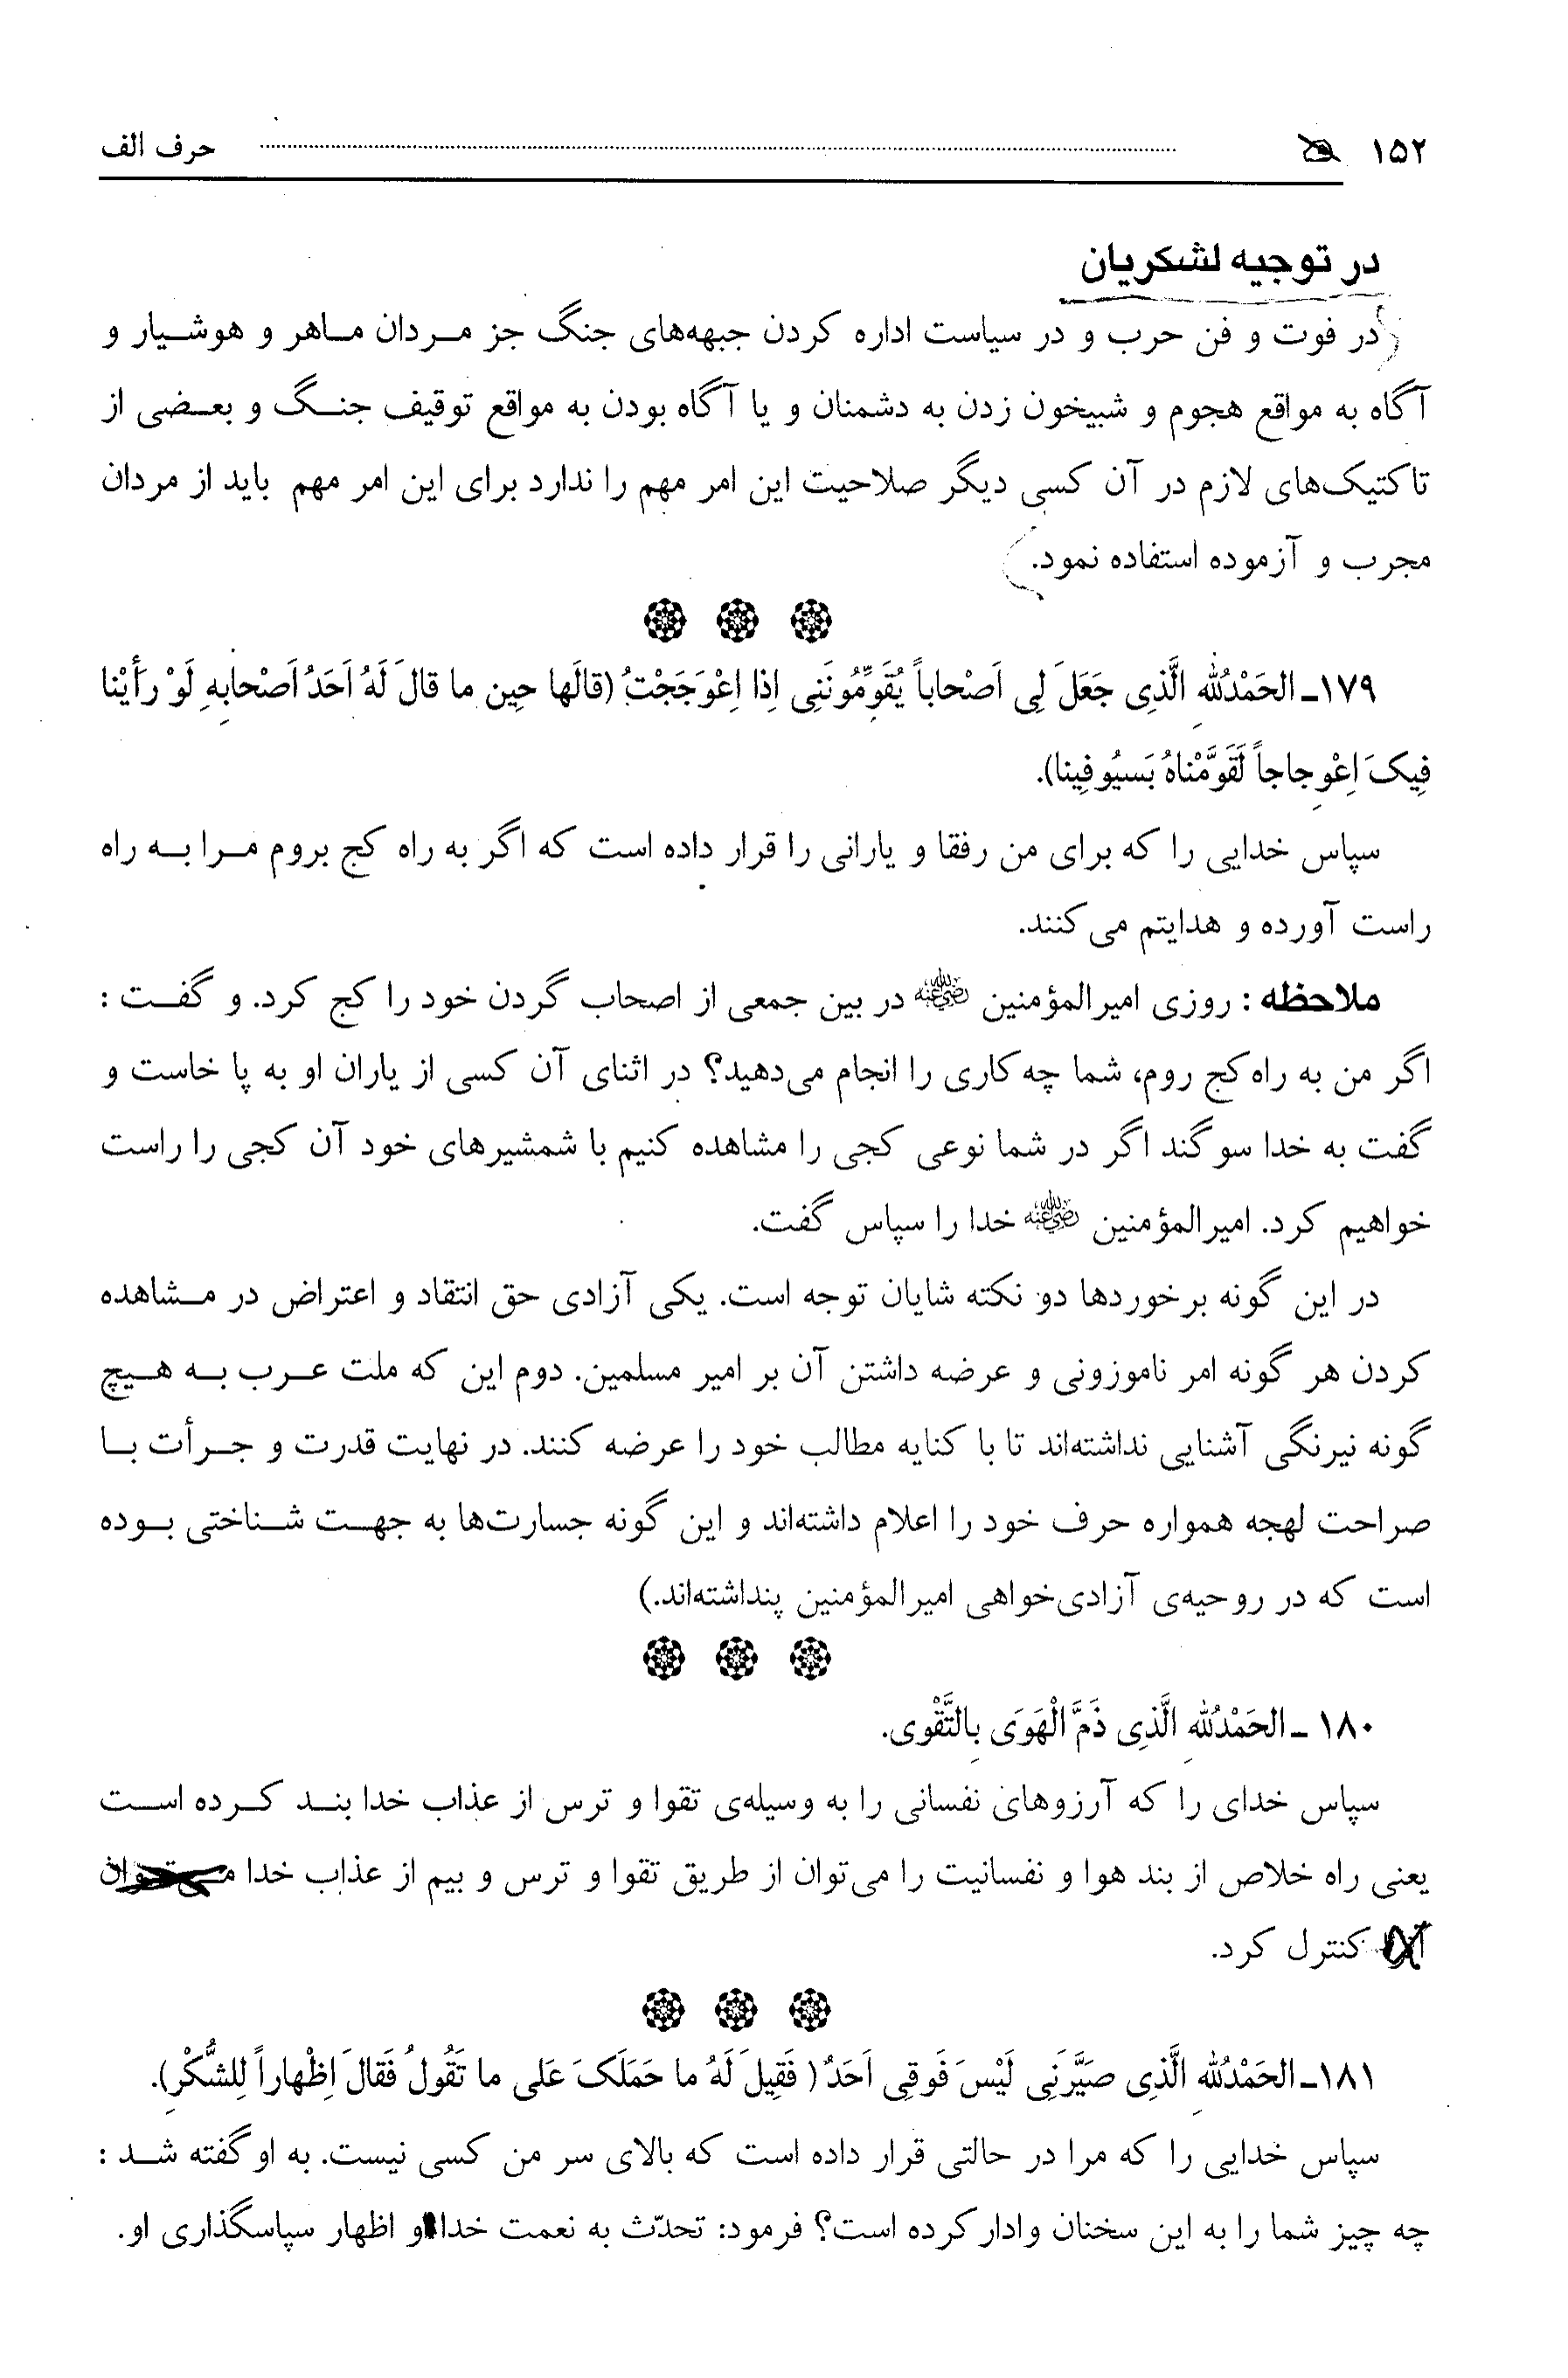 ۱۵۲ حرف الف
در توجیه لشکریان
در فوت و فن حرب و در سیاست اداره کردن جبهه‌های جنگ جز مردان ماهر و هوشیار و
آگاه به مواقع هجوم و شبیخون زدن به دشمنان و یا آگاه بودن به مواقع توقیف جنگ و بعضی از
تاکتیک‌های لازم در آن کسی دیگر صلاحیت این امر مهم را ندارد برای این امر مهم باید از مردان
مجرب و آزموده استفاده نمود.
۱۷۹ـ الحَمْدُللهِ الَّذِی جَعَلَ لِی اَصْحاباً یُقَوِّمُونَنِی اِذا اِعْوَجَجْتُ (قالَها حِین ما قالَ لَهُ اَحَدُ اَصْحابِهِ لَوْ رَأَیْنا
فِیکَ اِعْوِجاجاً لَقَوَّمْناهُ بَسیُوفِینا).
سپاس خدایی را که برای من رفقا و یارانی را قرار داده است که اگر به راه کج بروم مرا به راه
راست آورده و هدایتم می‌کنند.
ملاحظه : روزی امیرالمؤمنین رضی الله عنه در بین جمعی از اصحاب گردن خود را کج کرد. و گفت :
اگر من به راه کج روم، شما چه کاری را انجام می‌دهید؟ در اثنای آن کسی از یاران او به پا خاست و
گفت به خدا سوگند اگر در شما نوعی کجی را مشاهده کنیم با شمشیرهای خود آن کجی را راست
خواهیم کرد. امیرالمؤمنین رضی الله عنه خدا را سپاس گفت.
در این گونه برخوردها دو نکته شایان توجه است. یکی آزادی حق انتقاد و اعتراض در مشاهده
کردن هر گونه امر ناموزونی و عرضه داشتن آن بر امیر مسلمین. دوم این که ملت عرب به هیچ
گونه نیرنگی آشنایی نداشته‌اند تا با کنایه مطالب خود را عرضه کنند. در نهایت قدرت و جرأت با
صراحت لهجه همواره حرف خود را اعلام داشته‌اند و این گونه جسارت‌ها به جهت شناختی بوده
است که در روحیه‌ی آزادی‌خواهی امیرالمؤمنین پنداشته‌اند.)
۱۸۰ ـ الحَمْدُللهِ الَّذِی ذَمَّ الْهَوَی بِالتَّقْوی.
سپاس خدای را که آرزوهای نفسانی را به وسیله‌ی تقوا و ترس از عذاب خدا بند کرده است
یعنی راه خلاص از بند هوا و نفسانیت را می‌توان از طریق تقوا و ترس و بیم از عذاب خدا می‌توان
کنترل کرد.
۱۸۱ـ الحَمْدُللهِ الَّذِی صَیَّرَنِی لَیْسَ فَوقِی اَحَدٌ ( فَقِیلَ لَهُ ما حَمَلَکَ عَلی ما تَقُولُ فَقالَ اِظْهاراً لِلشُّکْرِ).
سپاس خدایی را که مرا در حالتی قرار داده است که بالای سر من کسی نیست. به او گفته شد :
چه چیز شما را به این سخنان وادار کرده است؟ فرمود: تحدّث به نعمت خدا و اظهار سپاسگذاری او.